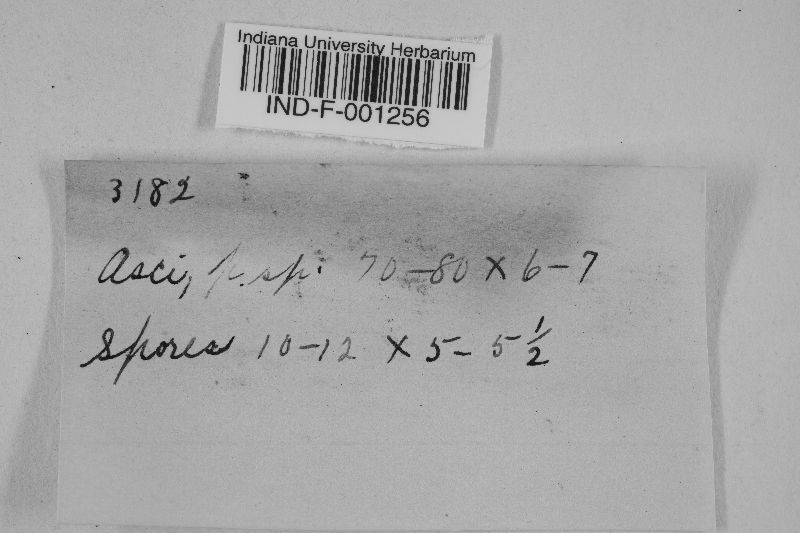 Indiana University Herbarium
IND-F-001256
3182
Asci, p.sp. 70-80 × 6-7
Spores 10-12 × 5-5 1/2